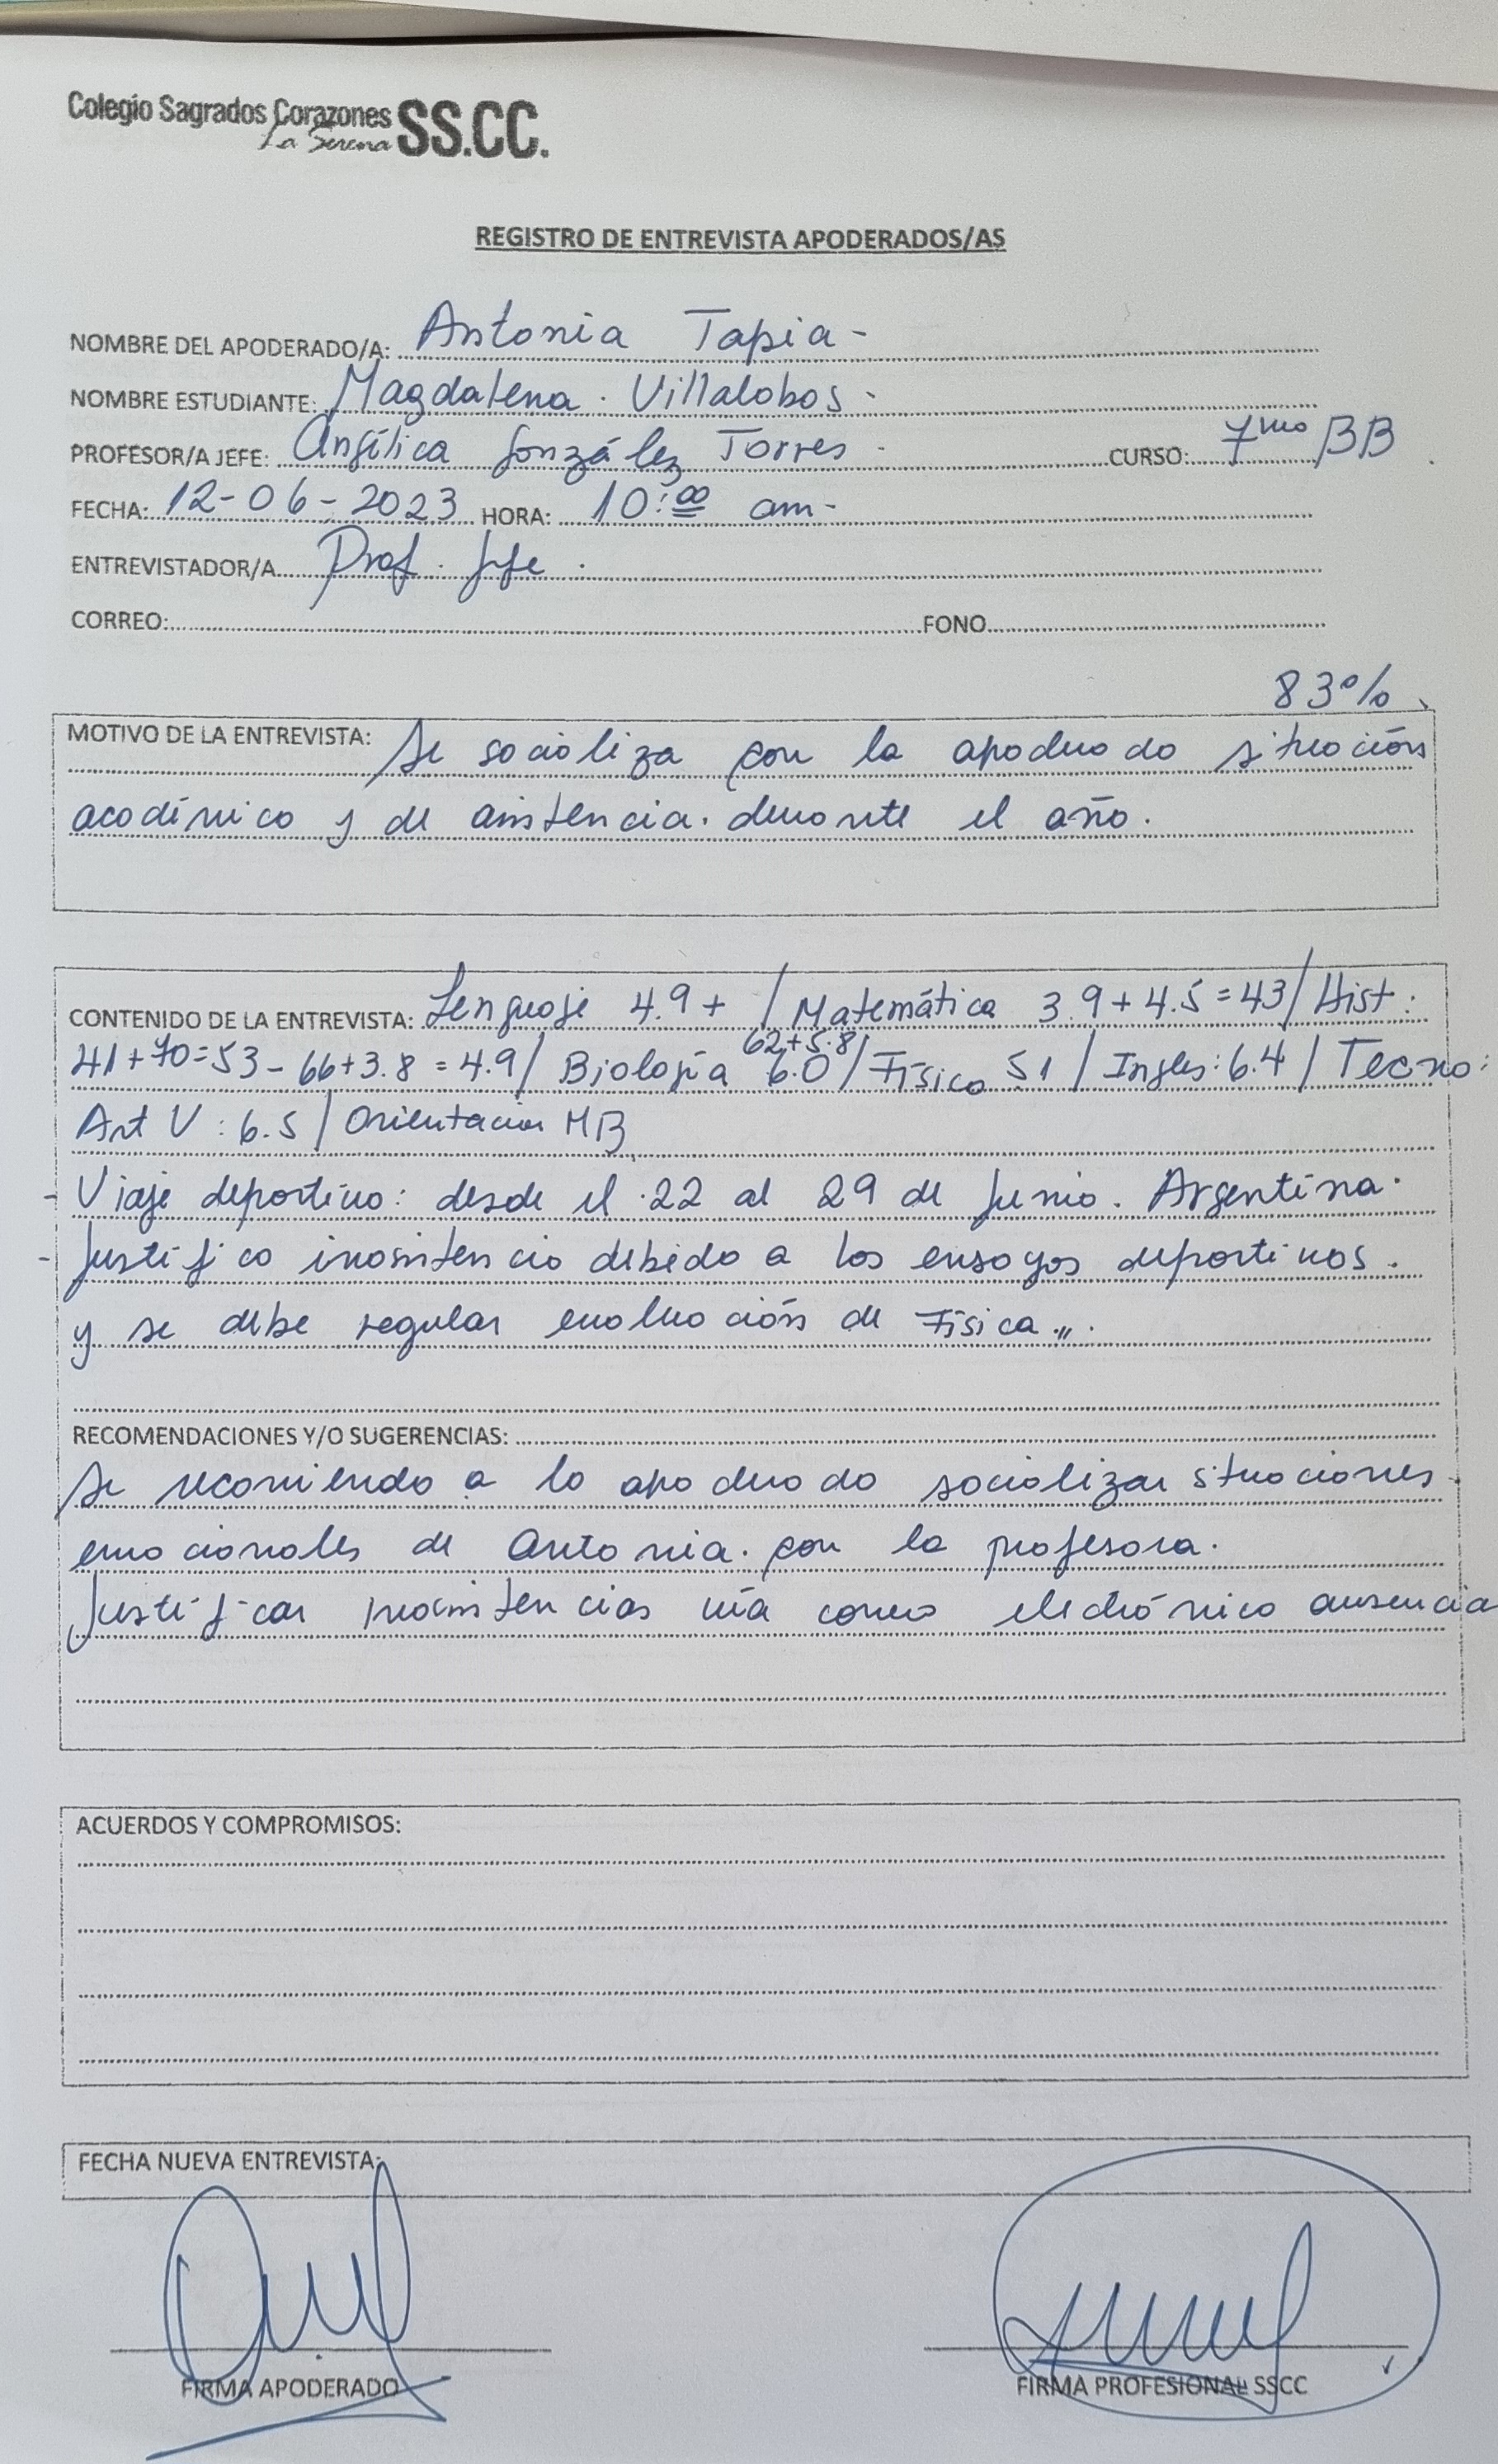 Colegio Sagrados Corazones SS.CC.
La Serena
REGISTRO DE ENTREVISTA APODERADOS/AS
NOMBRE DEL APODERADO/A: Antonia Tapia -
NOMBRE ESTUDIANTE: Magdalena . Villalobos -
PROFESOR/A JEFE: Angélica González Torres - CURSO: 7mo BB
FECHA: 12-06-2023 HORA: 10:00 am-
ENTREVISTADOR/A Prof. Jefe .
CORREO: FONO
83%
MOTIVO DE LA ENTREVISTA: Se socializa con la apoderado situación
académico y de asistencia. durante el año.
CONTENIDO DE LA ENTREVISTA: Lenguaje 4.9+ / Matemática 3.9+4.5=43/ Hist:
62+5.8
41+70=53-66+3.8=4.9/ Biología 6.0/ Física 51 / Ingles: 6.4 / Tecno:
Art V: 6.5 / Orientación MB
- Viaje deportivo: desde el 22 al 29 de Junio. Argentina.
- Justifico inasistencia debido a los ensayos deportivos.
y se debe regular evaluación de Física.,,.
RECOMENDACIONES Y/O SUGERENCIAS:
Se recomiendo a la apoderado socializar situaciones
emocionales de Antonia. con la profesora.
Justificar inasistencias vía correo electrónico ausencia
ACUERDOS Y COMPROMISOS:
FECHA NUEVA ENTREVISTA:
FIRMA APODERADO FIRMA PROFESIONAL SSCC